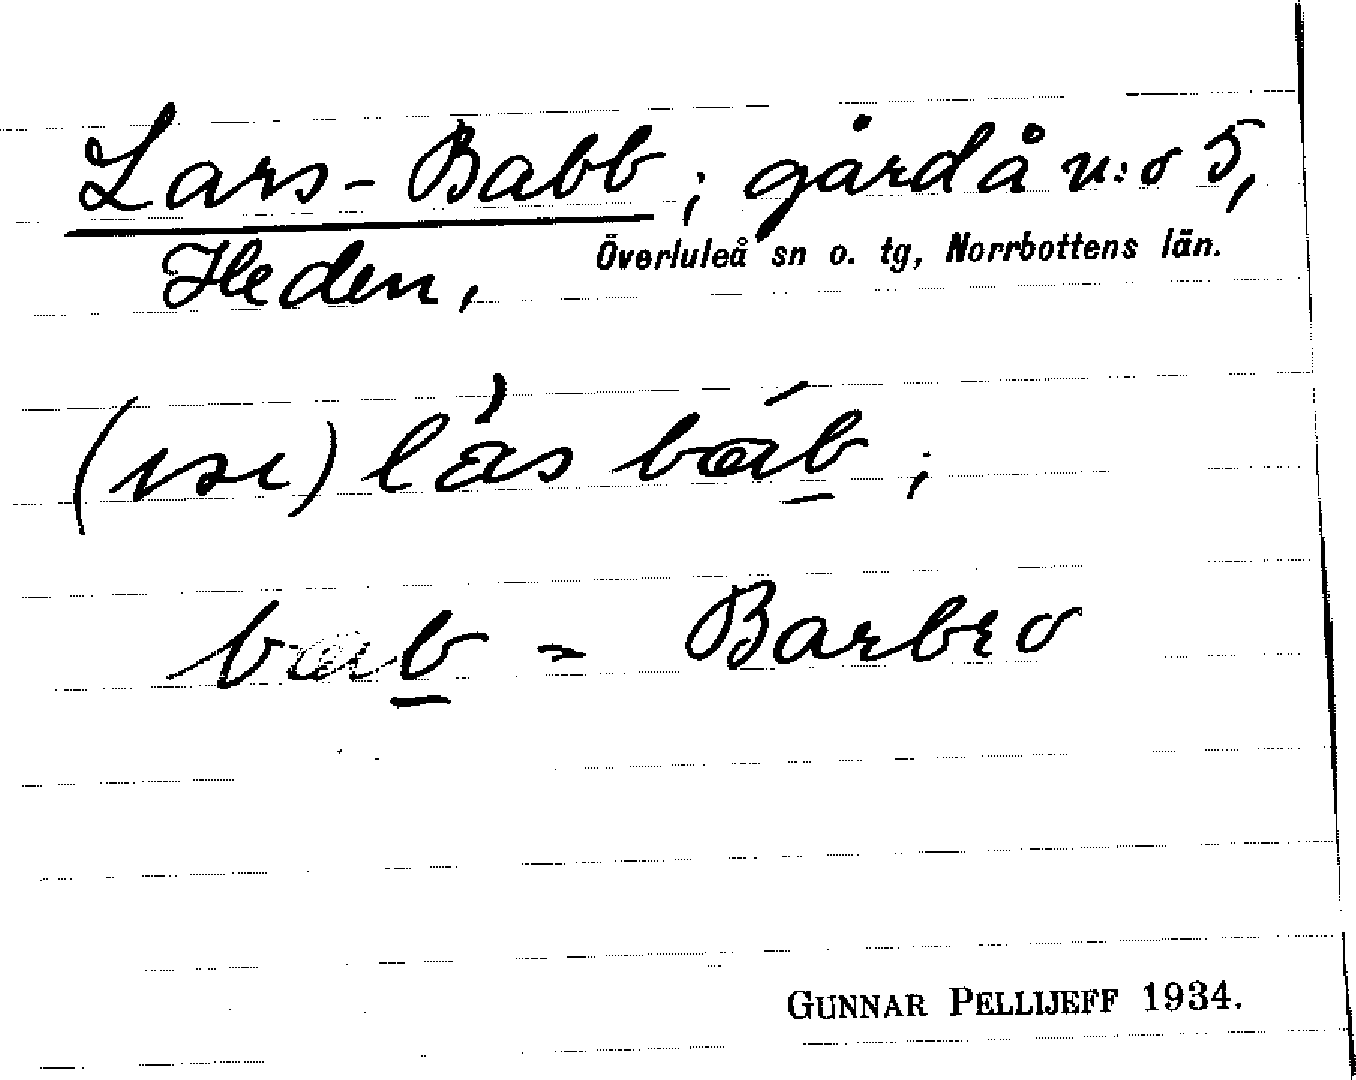 Lars-Babb; gård å n:o 5,
Heden, Överluleå sn o. tg, Norrbottens län.
(use) lås bab;
bab = Barbro
GUNNAR PELLIJEFF 1934.